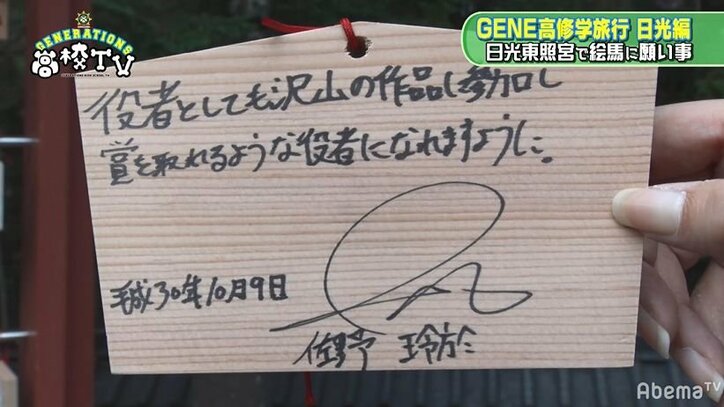 GENERATIONS
高校TV
GENE高修学旅行 日光編
日光東照宮で絵馬に願い事
役者としても沢山の作品に参加し
賞を取れるような役者になれますように。
平成30年10月9日
佐野 玲於
AbemaTV